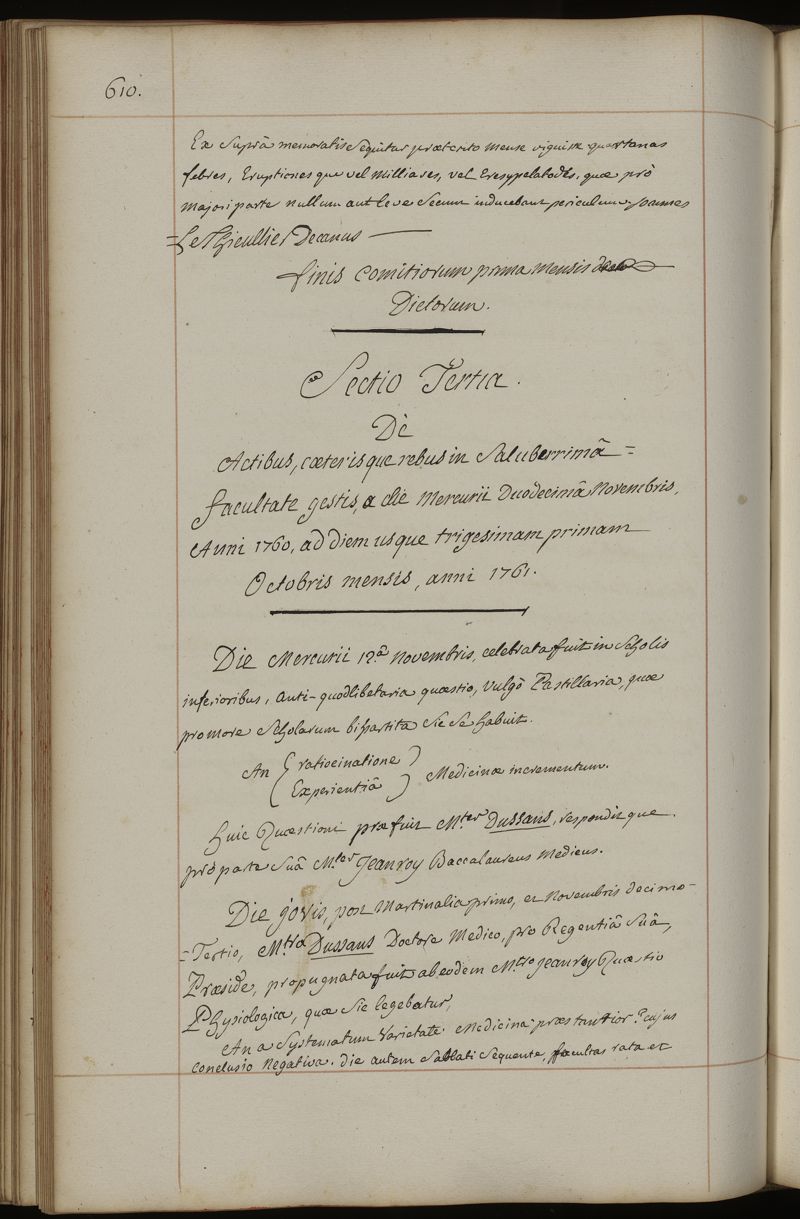 610.
Ex Suprà memoratis Sequitur præterito mense viguisse quartanas
febres, Eruptionesque vel Milliares, vel Eresypelatodes, quæ prò
majori parte nullum aut leve Secum inducebant periculum. Joannes
=Le Thieullier Decanus —
finis Comitiorum prima mensis
Dictorum.
Sectio Tertia.
Dè
Actibus, cæterisque rebus in Saluberrimâ=
facultate gestis, a die Mercurii Duodecimâ Novembris,
Anni 1760, ad diem usque trigesimam primam
Octobris mensis, anni 1761.
Die Mercurii 12.ª Novembris, celebrata fuit in Scholis
inferioribus, Anti-quodlibetaria quæstio, Vulgò Pastillaria, quæ
pro more Scholarum bipartita Sic Se habuit.
An { ratiocinatione )
( Experientiâ ) Medicinæ incrementum.
Huic Quæstioni præfuit M.ter Dussans, responditque
prò parte Suâ M.ter Jeanroy Baccalaureus Medicus.
Die Jovis, post Martinalia primo, et Novembris decimo-
=Tertio, M.tro Dussans Doctore Medico, pro Regentiâ Suâ,
Præside, propugnata fuit ab eodem M.tro Jeanroy Quæstio
Physiologica, quæ Sic legebatur,
An a Systematum Varietate Medicina præstantior? cujus
Conclusio Negativa. Die autem Sabbati Sequente, facultas rata et